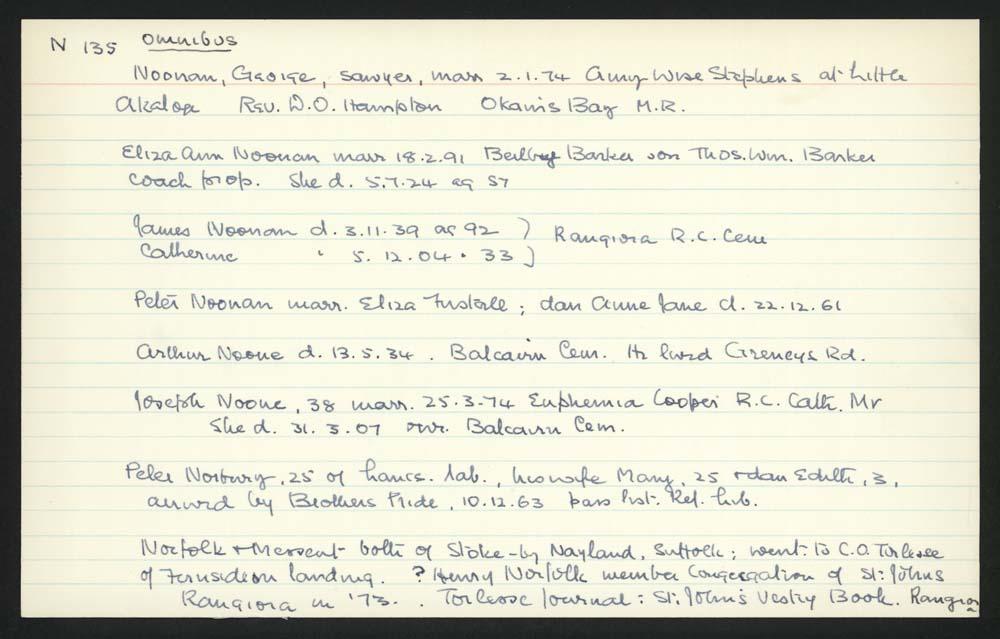 N 135 OMNIBUS
Noonan, George, sawyer, marr 2.1.74 Amy Wise Stephens at Little
Akaloa Rev. D.O. Hampton Okains Bay M.R.
Eliza Ann Noonan marr 18.2.91 Barker son Thos. Wm. Barker
coach prop. She d. 5.7.24 ag 57
James Noonan d. 3.11.39 ag 92 ) Rangiora R.C. Cem
Catherine " 5.12.04 " 33 )
Peter Noonan marr. Eliza ; dau Anne Jane d. 22.12.61
Arthur Noone d. 13.5.34 . Balcairn Cem. He lived Greneys Rd.
Joseph Noone, 38 marr. 25.3.74 Euphemia Cooper R.C. Cath. Mr
She d. 31.3.07 Balcairn Cem.
Peter Norbury, 25 of Lancs. lab., his wife Mary, 25 + dau Edith, 3,
arrived by Brothers Pride, 10.12.63 pass list. Ref. Lib.
Norfolk + Messent both of Stoke-by Nayland, Suffolk; went to C.O. Torlesse
of Fernside on landing. ? Henry Norfolk member Congregation of St: Johns
Rangiora in '73. . Torlesse Journal: St. John's Vestry Book. Rangiora